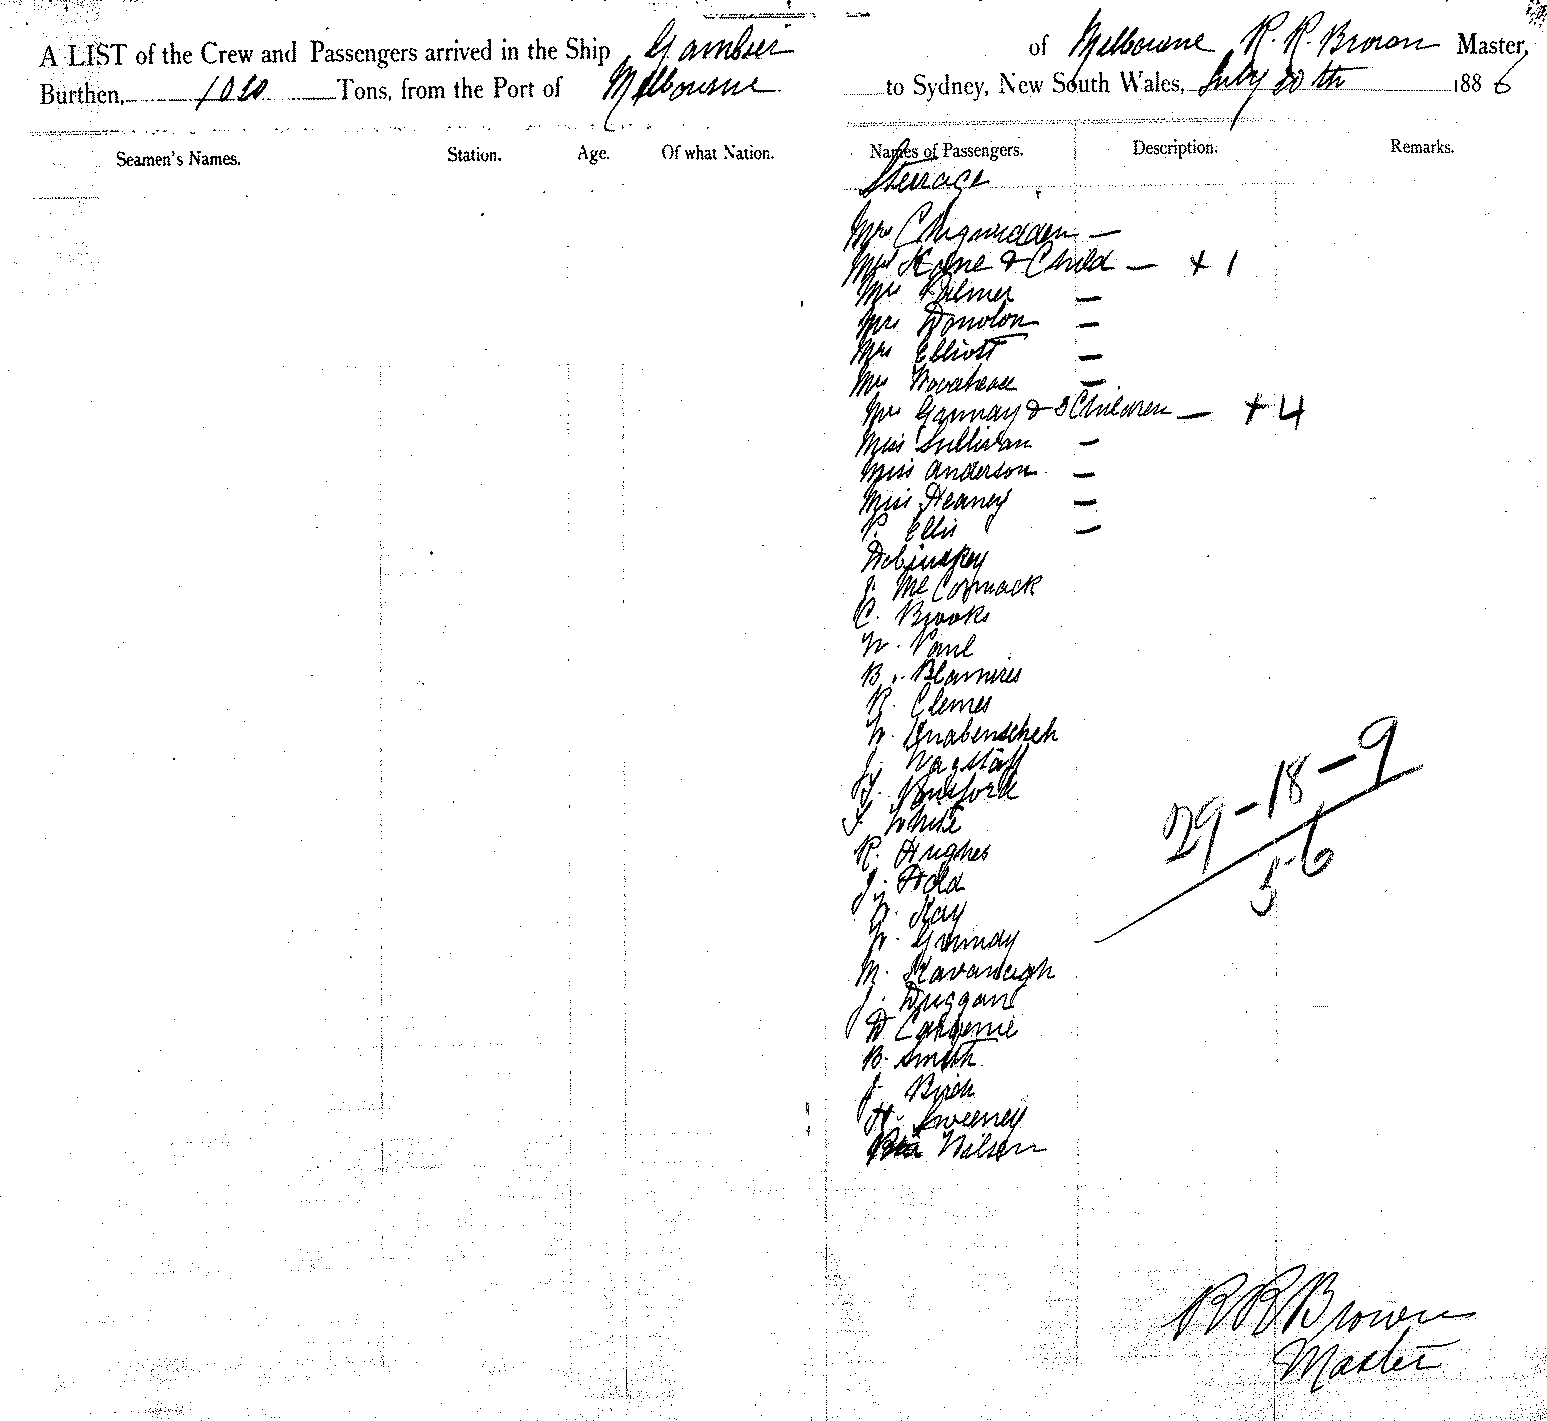 A LIST of the Crew and Passengers arrived in the Ship Gambier of Melbourne R. R. Brown Master,
Burthen, Tons, from the Port of Melbourne to Sydney, New South Wales, July 1886
Seamen's Names. Station. Age. Of what Nation. Names of Passengers. Description. Remarks.
Steerage
Mrs —
Mrs Kane & Child — + 1
Mrs Palmer —
Mrs Donolon —
Mrs Elliott —
Mrs —
Mrs Gannay & Children — + 4
Miss Sullivan —
Miss Anderson —
Miss Heaney —
P. Ellis —
J. McCormack
C. Brooks
W. Paul
B. Blamires
R. Clemes
W.
J. Wagstaff
F. White
R. Hughes
J. Hold
W. Kay
W. Gannay
M. Kavanagh
J. Duggan
D
B. Smith
J. Birch
H. Sweeney
Wilson
29 - 18 - 9
56
R R Brown
Master